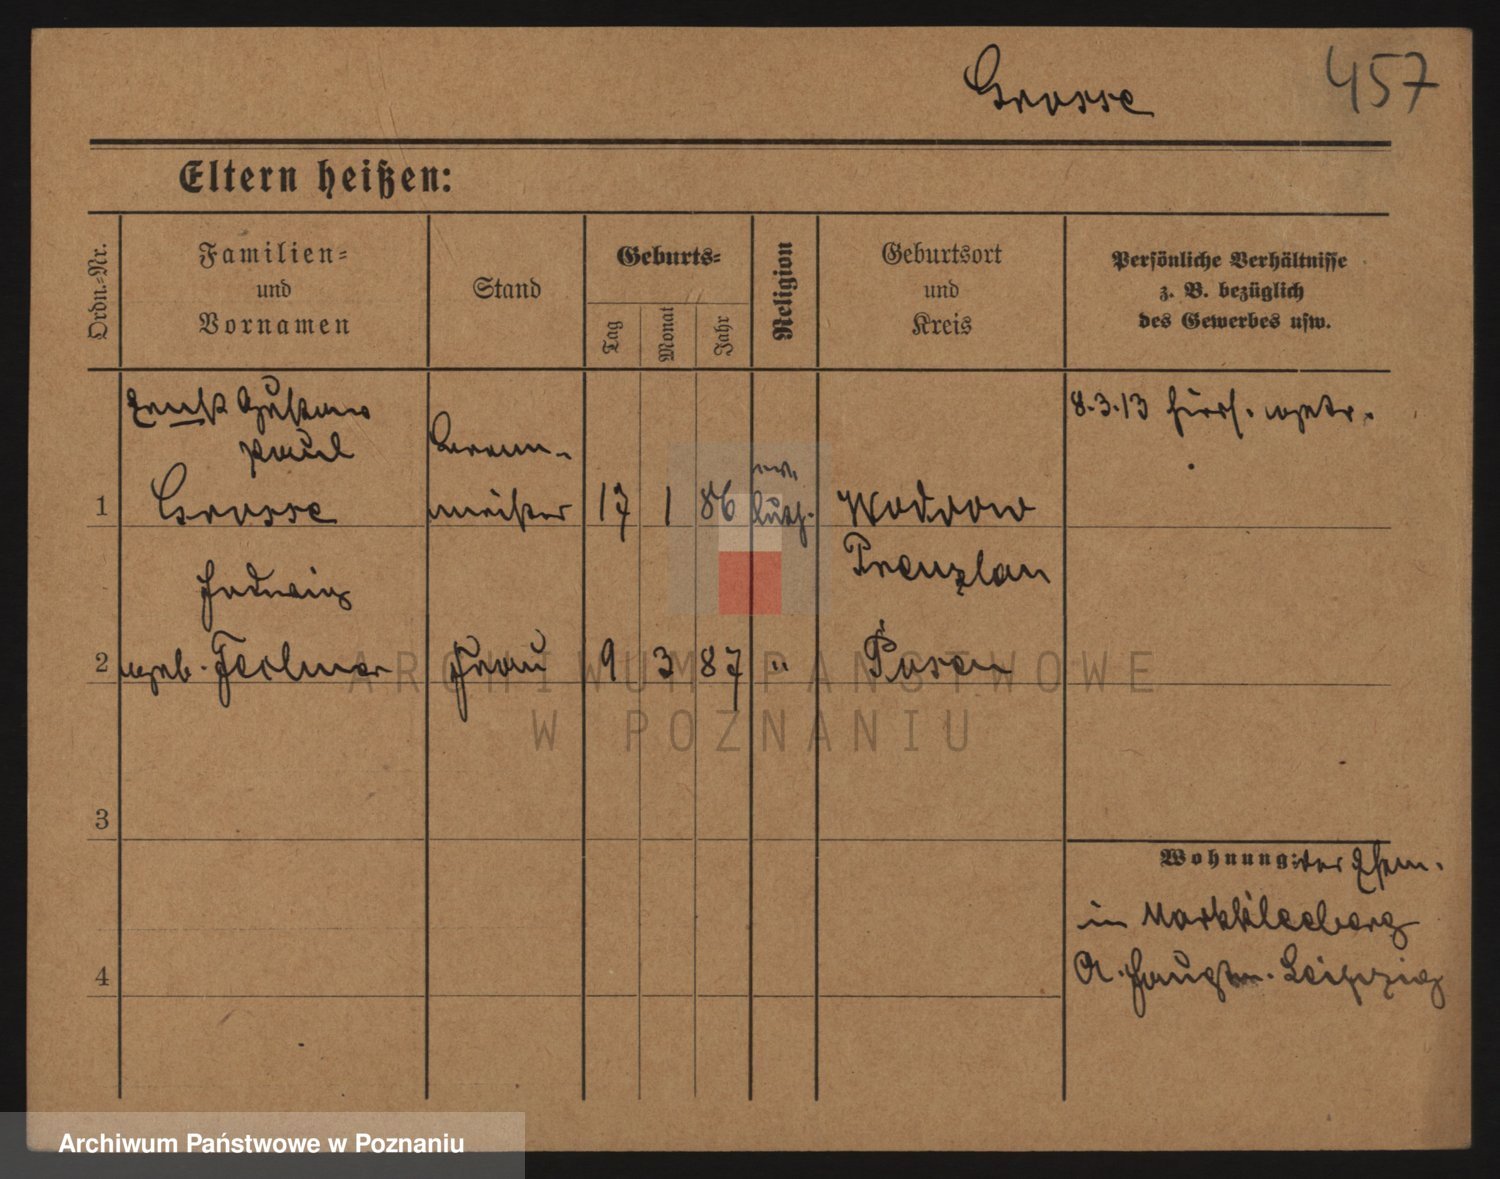 Grosse
457
Eltern heißen:
Ordn.-Nr.
Familien-
und
Vornamen
Stand
Geburts-
Tag
Monat
Jahr
Religion
Geburtsort
und
Kreis
Persönliche Verhältnisse
z. B. bezüglich
des Gewerbes usw.
Ernst Gustav
Paul
Grosse
1
Braumeister
17 1 86
ev.
luth.
Wodrow
Prenzlau
8.3.13
Hedwig
2
geb. Feilmer
Frau
9 3 87 "
Posen
3
4
Wohnung: der Ehem.
in Markkleeberg
A. Hauptm. Leipzig
ARCHIWUM PAŃSTWOWE
W POZNANIU
Archiwum Państwowe w Poznaniu